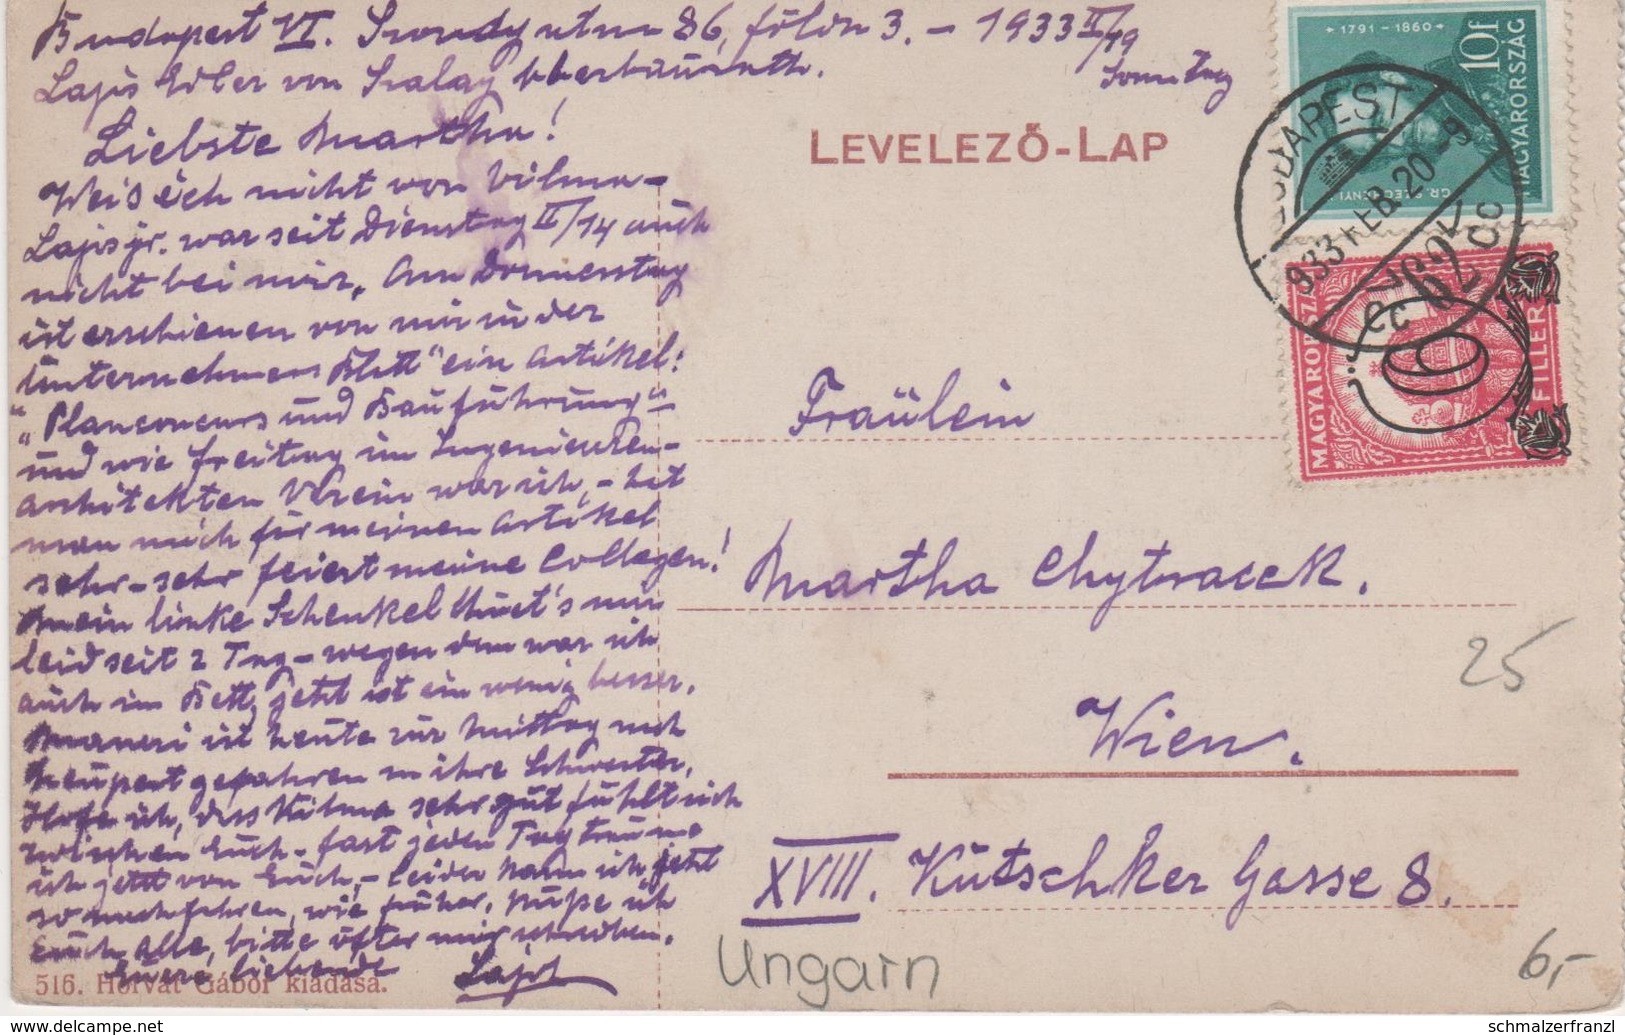 Budapest VI. Szondy utca 86, földsz 3. – 1933 II/19
Lajos Edler von Szalay Oberbaurath. Sonntag
Liebste Martha!
Weis ich nicht von Vilma –
Lajos jr. war seit Dienstag II/14 auch
nicht bei mir. Am Donnerstag
ist erschienen von mir in der
"Unternehmer Blatt" ein Artikel:
"Planconcurs und Bauführung" –
und wie Freitag im Ingenieuren-
Architekten Verein war ich, – hat
man mich für meinen Artikel
sehr – sehr feiert meine Collegen!
Mein linke Schenkel thuet's mir
leid seit 2 Tag – wegen dem war ich
auch im Bett, jetzt ist ein wenig besser.
ist heute zur Mittag nach
gefahren zu ihre Schwester,
Hofe ich, dass Vilma sehr gut fühlt sich
zwischen Euch – fast jeden Tag traume
ich jetzt von Euch, – leider kann ich jetzt
so nach fahren, wie früher. Küße ich
Euch Alle, bitte öfter mir schreiben.
Euere liebende Lajos
516. Horvát Gábor kiadása.
LEVELEZŐ-LAP
Fräulein
Martha Chytracek.
Wien.
XVIII. Kutschker Gasse 8.
Ungarn
25
6,-
1791 – 1860
10f
MAGYARORSZÁG
GR. SZÉCHENYI
BUDAPEST
933 FEB. 20 – 9
CC
MAGYARORSZÁG
6
FILLÉR
www.delcampe.net
schmalzerfranzl